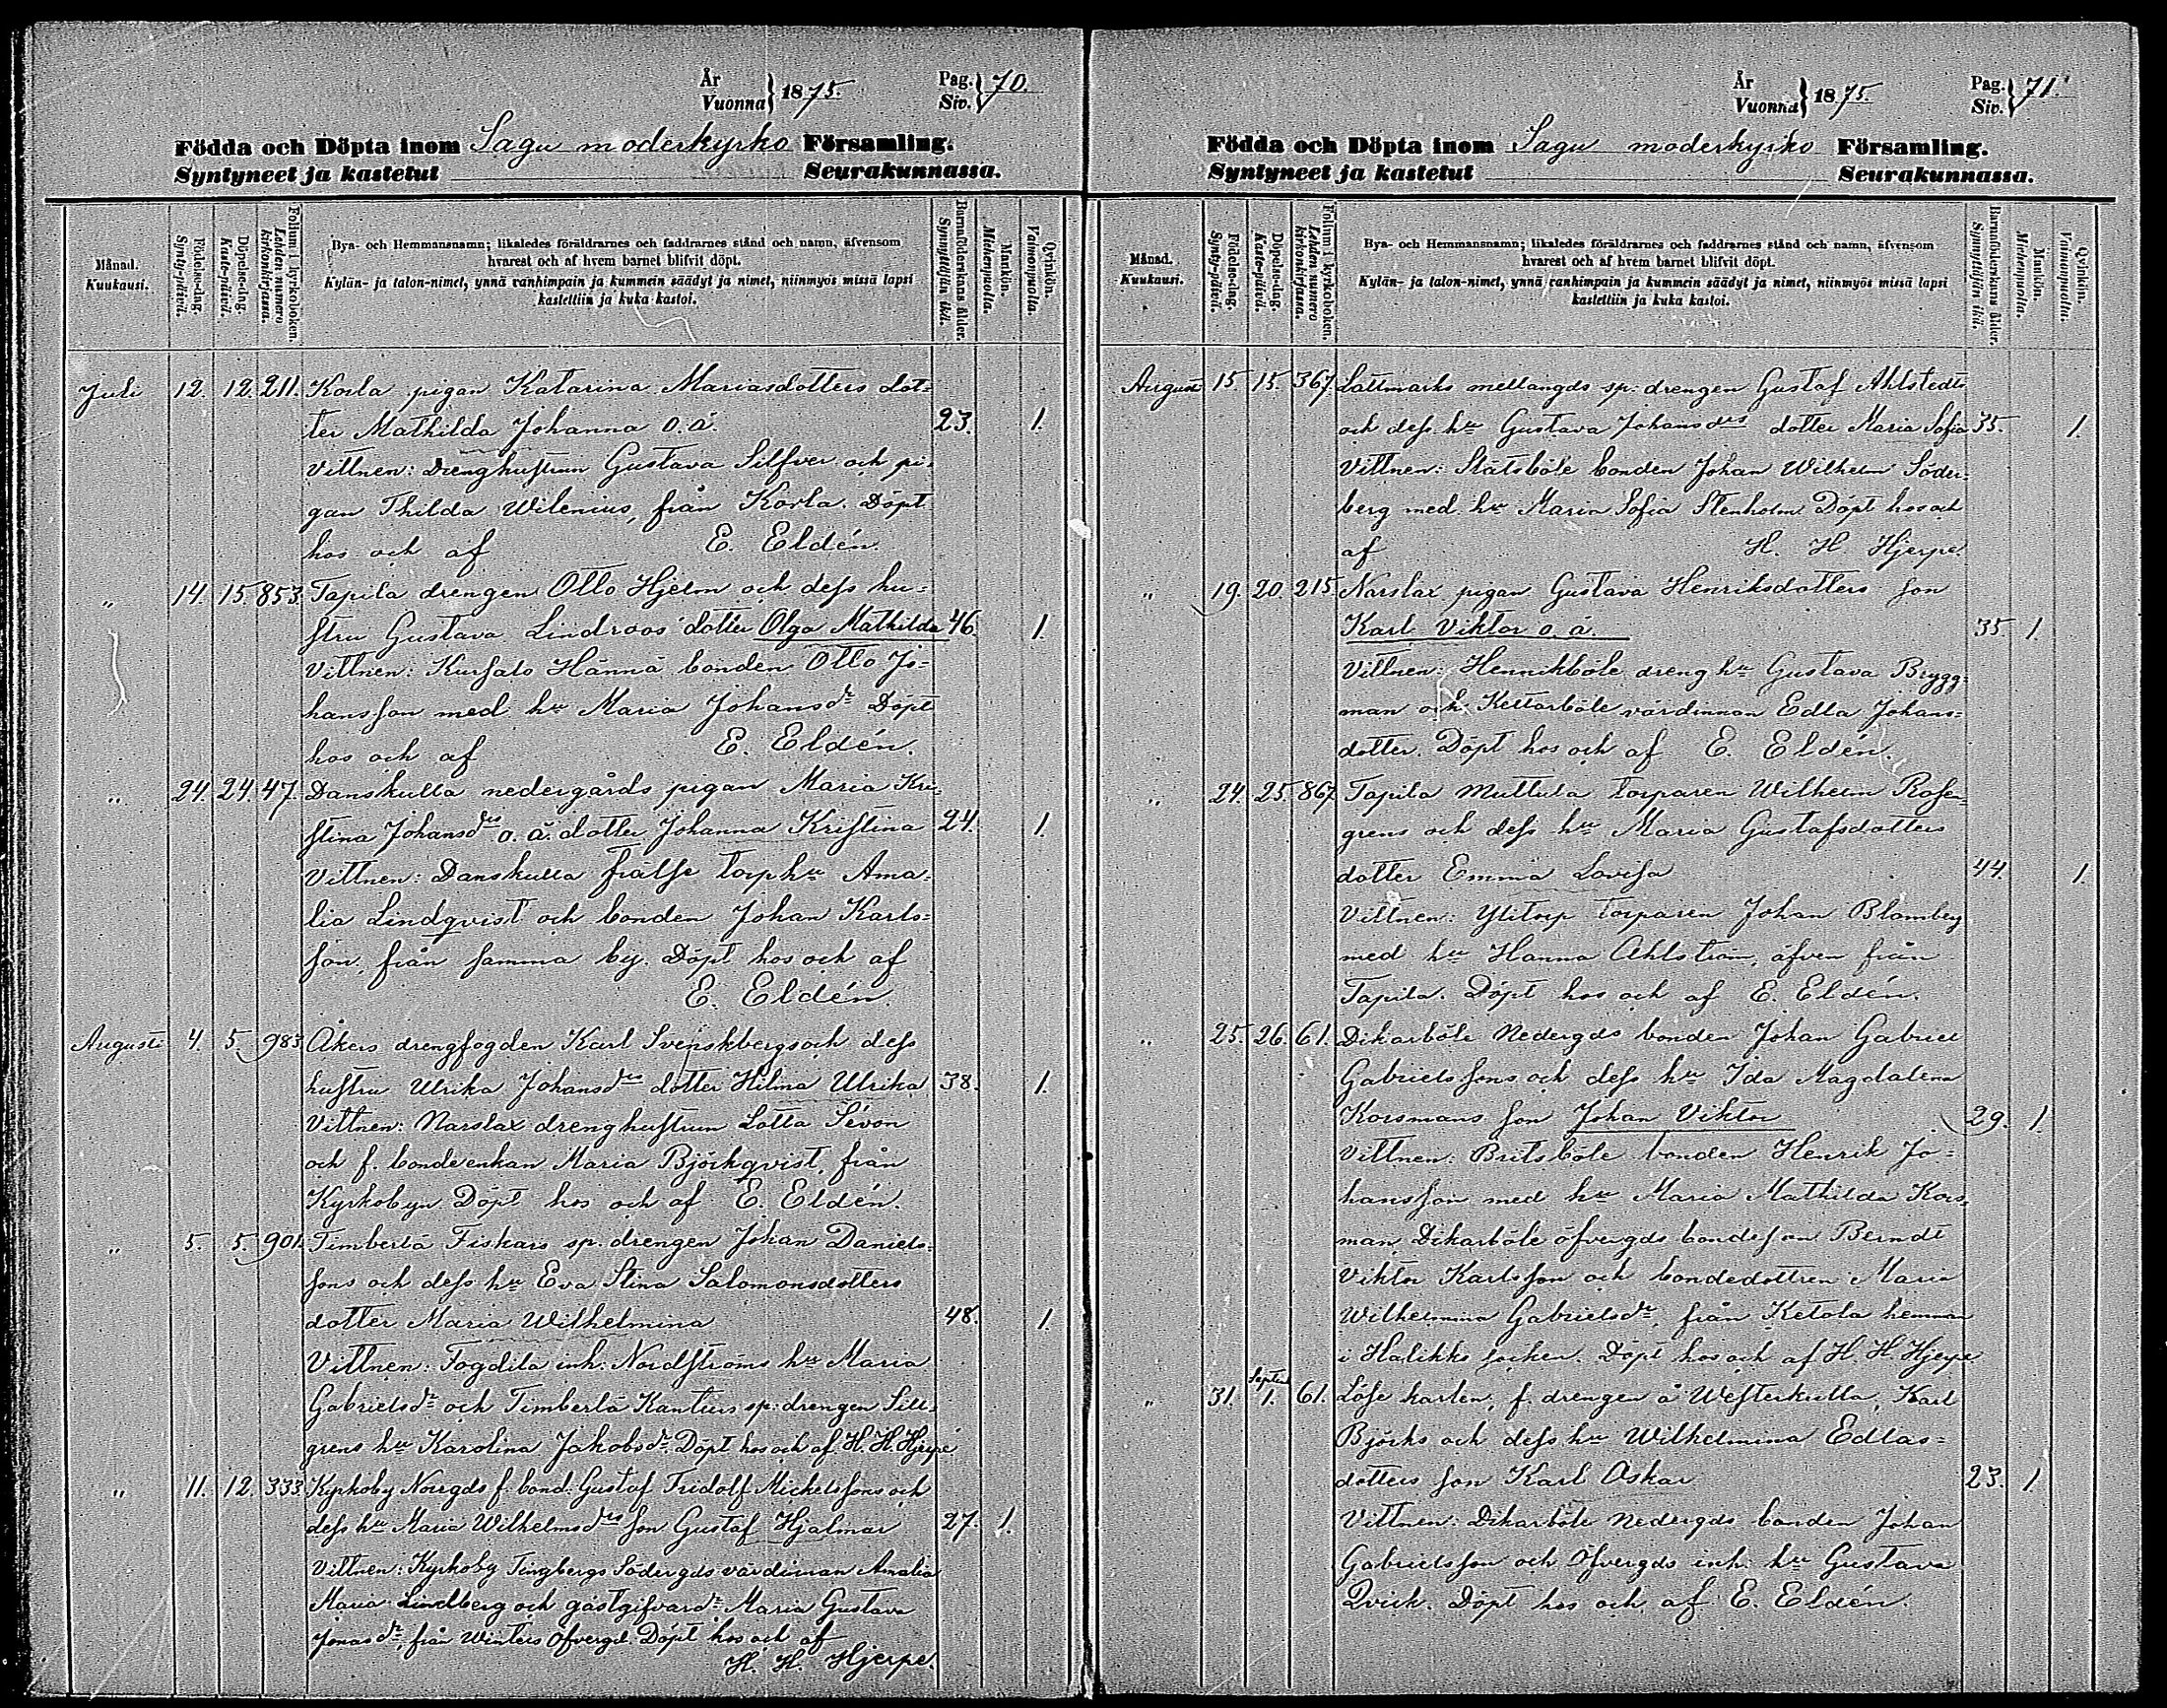 År
Vuonna } 1875.
Pag.
Siv. } 70.
Födda och Döpta inom Sagu moderkyrko Församling.
Syntyneet ja kastetut Seurakunnassa.
Månad.
Kuukausi.
Födelse-dag.
Synty-päivä.
Döpelse-dag.
Kaste-päivä.
Folium i kyrkoboken.
Lehden numero kirkonkirjassa.
Bya- och Hemmansnamn; likaledes föräldrarnes och faddrarnes stånd och namn, äfvensom
hvarest och af hvem barnet blifvit döpt.
Kylän- ja talon-nimet, ynnä vanhimpain ja kummein säädyt ja nimet, niinmyös missä lapsi
kastettiin ja kuka kastoi.
Barnaföderskans ålder.
Synnyttäjän ikä.
Mankön.
Miehenpuolta.
Qvinkön.
Vaimonpuolta.
Juli 12. 12. 211. Korla pigan Katarina Mariasdotters dot=
ter Mathilda Johanna o. ä. 23. 1.
Vittnen: Drenghustrun Gustava Silfver och pi=
gan Thilda Wilenius, från Korla. Döpt
hos och af E. Eldén.
" 14. 15. 853. Tapila drengen Otto Hjelm och dess hu=
stru Gustava Lindroos' dotter Olga Mathilda 46. 1.
Vittnen: Kursalo Hännä bonden Otto Jo=
hansson med hu Maria Johansdr Döpt
hos och af E. Eldén.
" 24. 24. 47. Danskulla nedergårds pigan Maria Kri=
stina Johansdrs o. ä. dotter Johanna Kristina 24. 1.
Vittnen: Danskulla frälse torp hu Ama=
lia Lindqvist och bonden Johan Karls=
son, från samma by. Döpt hos och af
E. Eldén.
Augusti 4. 5. 983. Åkers drengfogden Karl Svenskbergs och dess
hustru Ulrika Johansdrs dotter Hilma Ulrika 38. 1.
Vittnen: Narslax drenghustrun Lotta Sévon
och f. bondeenkan Maria Björkqvist, från
Kyrkobyn. Döpt hos och af E. Eldén.
" 5. 5. 901. Timberlä Fiskars sp. drengen Johan Daniels=
sons och dess hu Eva Stina Salomonsdotters
dotter Maria Wilhelmina 48. 1.
Vittnen: Fogdila inh. Nordströms hu Maria
Gabrielsdr och Timberlä Kantius sp. drengen Sill=
grens hu Karolina Jakobsdr Döpt hos och af H. H. Hjerpe
" 11. 12. 333. Kyrkoby Norrgds f. bond. Gustaf Fridolf Mickelssons och
dess hu Maria Wilhelmsdrs son Gustaf Hjalmar 27. 1.
Vittnen: Kyrkoby Tingbergs Södergds värdinnan Amalia
Maria Lindberg och gästgifvaredr Maria Gustava
Jonasdr från Winters Öfvergd. Döpt hos och af
H. H. Hjerpe.
År
Vuonna } 1875.
Pag.
Siv. } 71.
Födda och Döpta inom Sagu moderkyrko Församling.
Syntyneet ja kastetut Seurakunnassa.
Månad.
Kuukausi.
Födelse-dag.
Synty-päivä.
Döpelse-dag.
Kaste-päivä.
Folium i kyrkoboken.
Lehden numero kirkonkirjassa.
Bya- och Hemmansnamn; likaledes föräldrarnes och faddrarnes stånd och namn, äfvensom
hvarest och af hvem barnet blifvit döpt.
Kylän- ja talon-nimet, ynnä vanhimpain ja kummein säädyt ja nimet, niinmyös missä lapsi
kastettiin ja kuka kastoi.
Barnaföderskans ålder.
Synnyttäjän ikä.
Mankön.
Miehenpuolta.
Qvinkön.
Vaimonpuolta.
Augusti 15 15. 367. Lättmarks mellangds sp. drengen Gustaf Ahlstedts
och dess hu Gustava Johansdrs dotter Maria Sofia 35. 1.
Vittnen: Stätsböle bonden Johan Wilhelm Söder=
berg med hu Maria Sofia Stenholm Döpt hos och
af H. H. Hjerpe.
" 19. 20. 215. Narslax pigan Gustava Henriksdotters son
Karl Viktor o. ä. 35. 1.
Vittnen: Henrikböle dreng hu Gustava Brygg=
man och Kettarböle värdinnan Edla Johans=
dotter. Döpt hos och af E. Eldén.
" 24. 25. 867. Tapila Muttula torparen Wilhelm Rosen=
grens och dess hu Maria Gustafsdotters
dotter Emma Lovisa 44. 1.
Vittnen: Ylitorp torparen Johan Blomberg
med hu Hanna Ahlström, äfven från
Tapila. Döpt hos och af E. Eldén.
" 25. 26. 61. Dikarböle Nedergds bonden Johan Gabriel
Gabrielssons och dess hu Ida Magdalena
Korsmans son Johan Viktor 29. 1.
Vittnen: Britsböle bonden Henrik Jo=
hansson med hu Maria Mathilda Kors=
man, Dikarböle öfvergds bondeson Berndt
Viktor Karlsson och bondedottren Maria
Wilhelmina Gabrielsdr, från Ketola hemman
i Halikko socken. Döpt hos och af H. H. Hjerpe
" 31. Septemb 1. 61. Löse karlen, f. drengen å Westerkulla, Karl
Björks och dess hu Wilhelmina Edlas=
dotters son Karl Oskar 23. 1.
Vittnen: Dikarböle Nedergds bonden Johan
Gabrielsson och Öfvergds inh. hu Gustava
Qvick. Döpt hos och af E. Eldén.